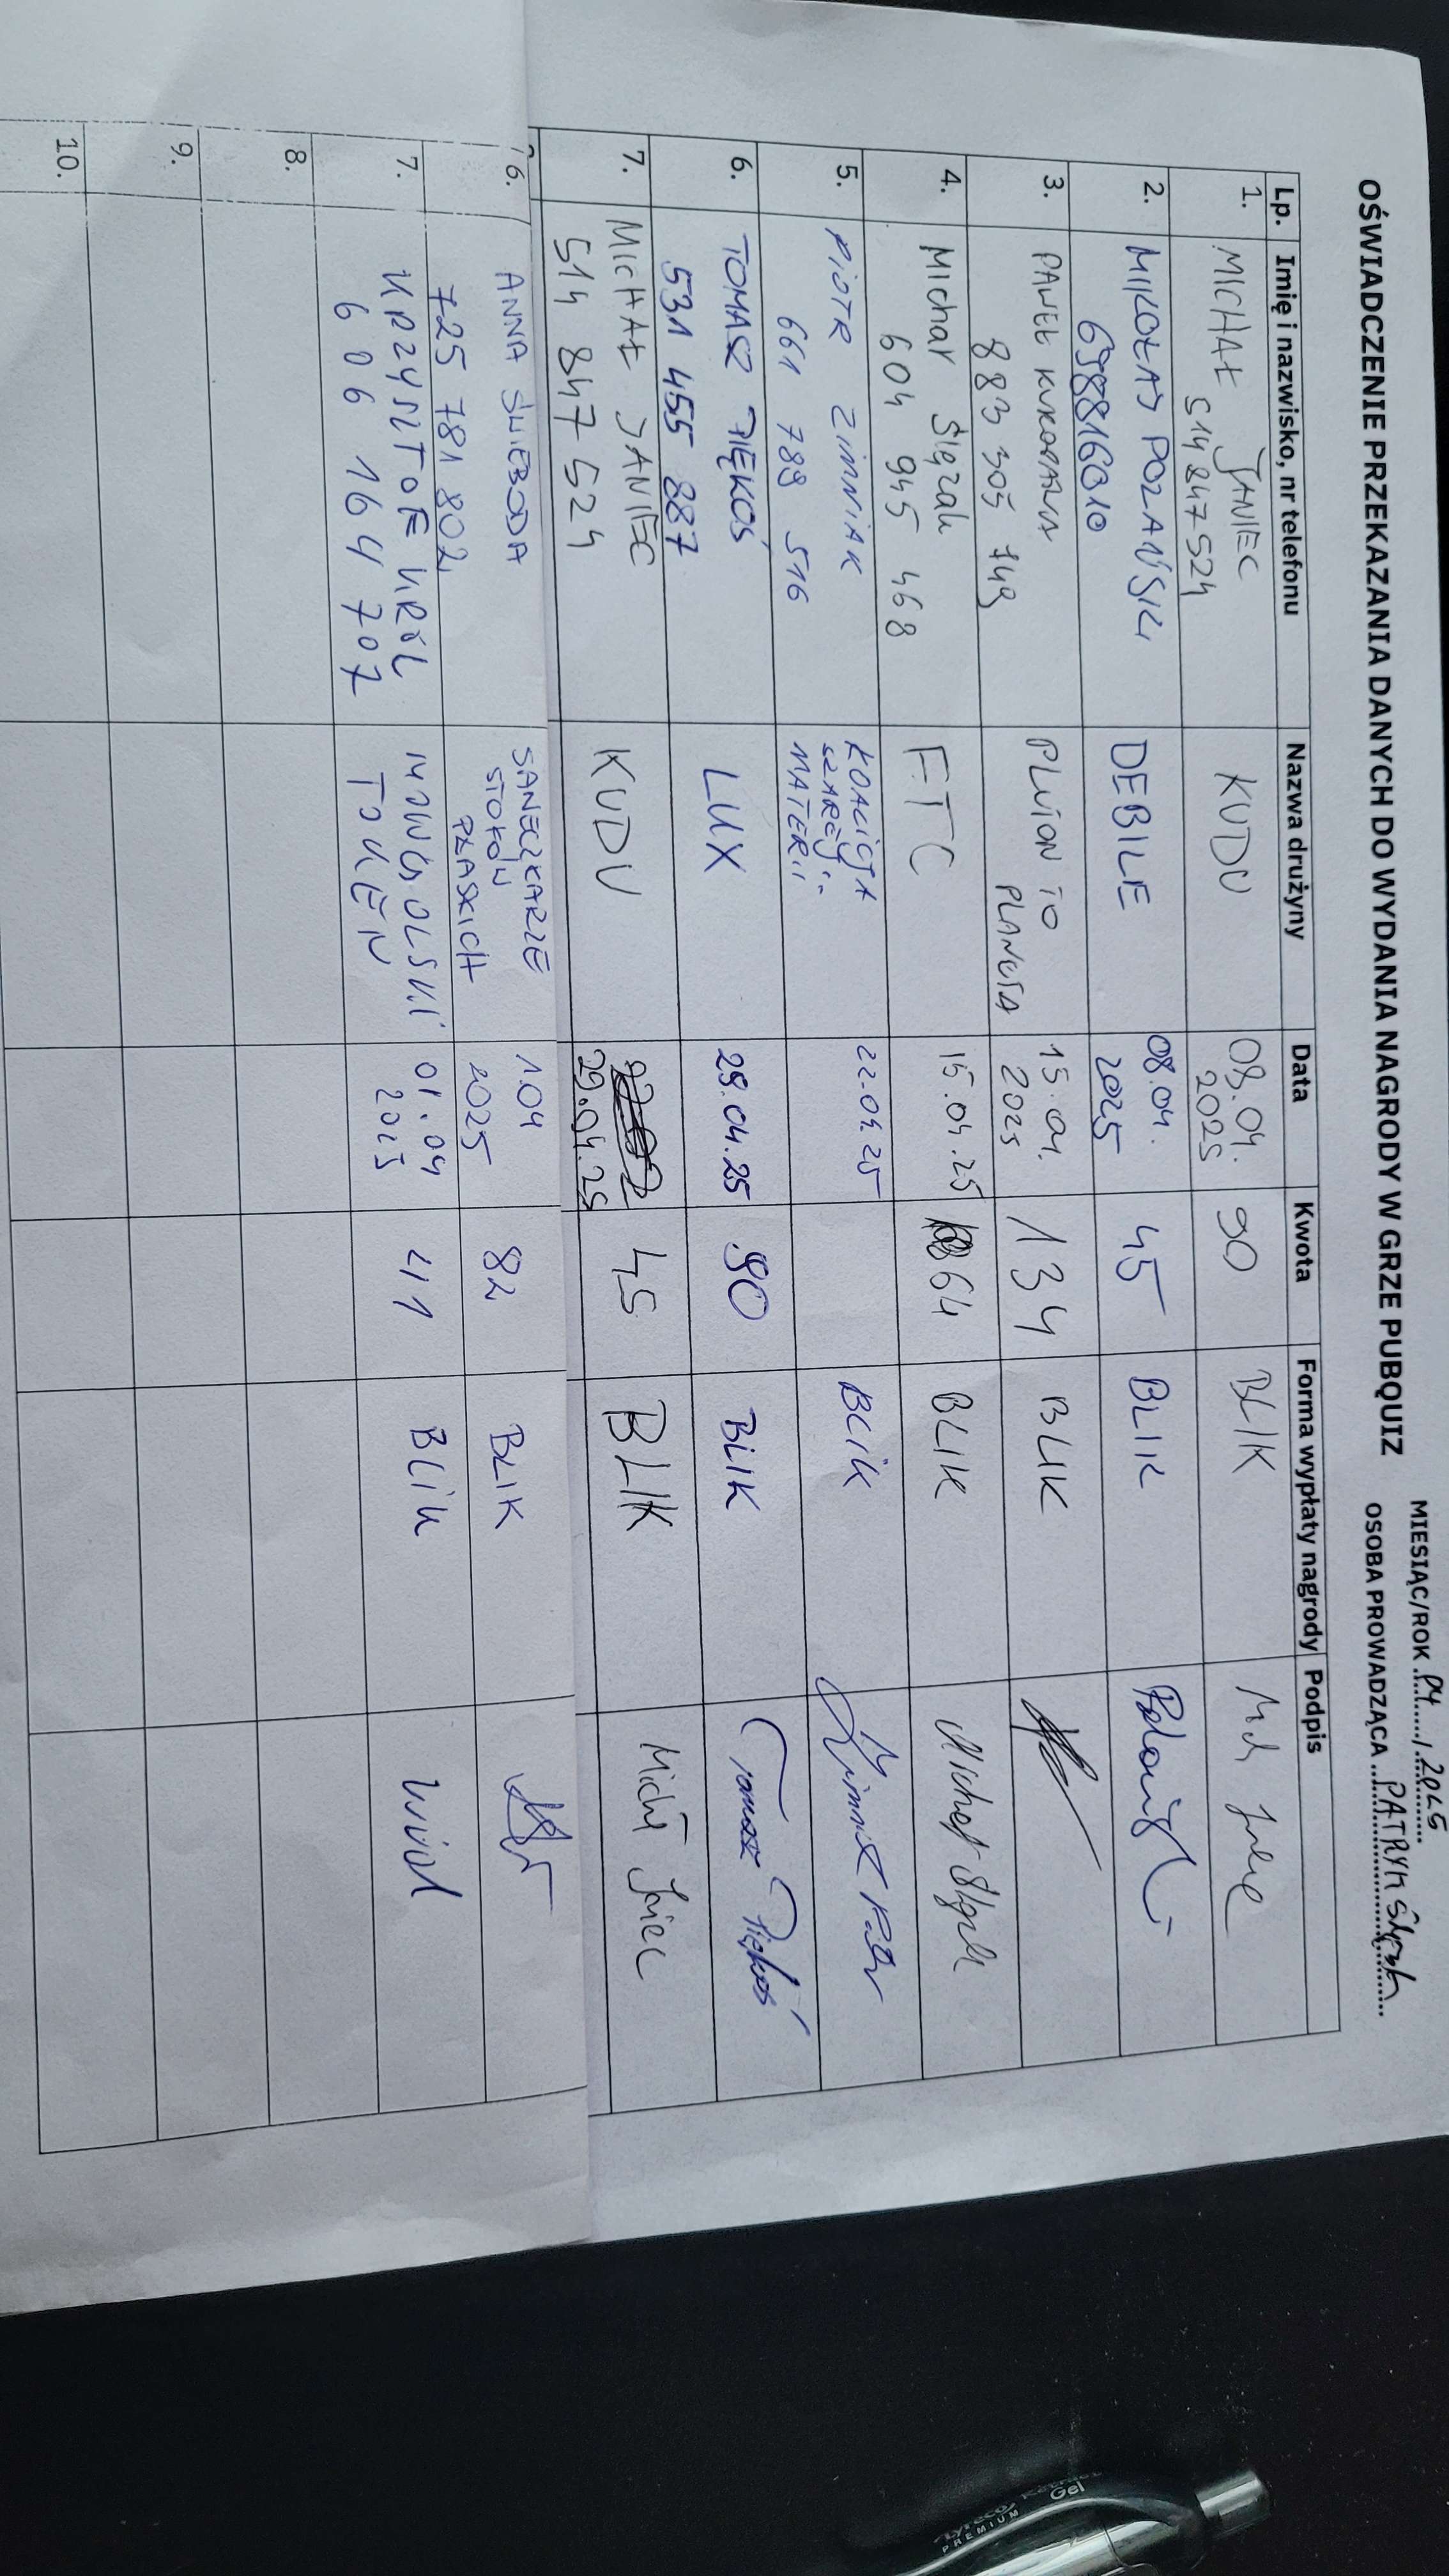 MIESIĄC/ROK 04 / 2025
OŚWIADCZENIE PRZEKAZANIA DANYCH DO WYDANIA NAGRODY W GRZE PUBQUIZ
OSOBA PROWADZĄCA PATRYK
Lp. Imię i nazwisko, nr telefonu Nazwa drużyny Data Kwota Forma wypłaty nagrody Podpis
1. MICHAŁ JANIEC KUDU 08.04. 90 BLIK
514 847 524 2025
2. MIKOŁAJ POZNAŃSKI DEBILE 08.04. 45 BLIK
698816010 2025
3. PAWEŁ PLUTON TO 15.04. 134 BLIK
883 305 749 PLANETA 2025
4. Michał Ślęzak FTC 15.04.25 64 BLIK Michał Ślęzak
604 945 468
5. PIOTR ZIMNIAK KOALICJA 22.04.25 BLIK
661 789 516 SZAREJ
MATERII
6. TOMASZ PIĘKOŚ LUX 29.04.25 90 BLIK Tomasz Piękoś
531 455 887
7. MICHAŁ JANIEC KUDU 45 BLIK Michał Janiec
514 847 524 29.04.25
6. ANNA ŚWIEBODA SANECZKARZE 1.04 82 BLIK
725 781 802 STOKÓW 2025
PŁASKICH
7. KRZYSZTOF KRÓL NOWOOLSKI 01.04 41 BLIK
606 164 707 TOKEN 2025
8.
9.
10.
Gel
PREMIUM